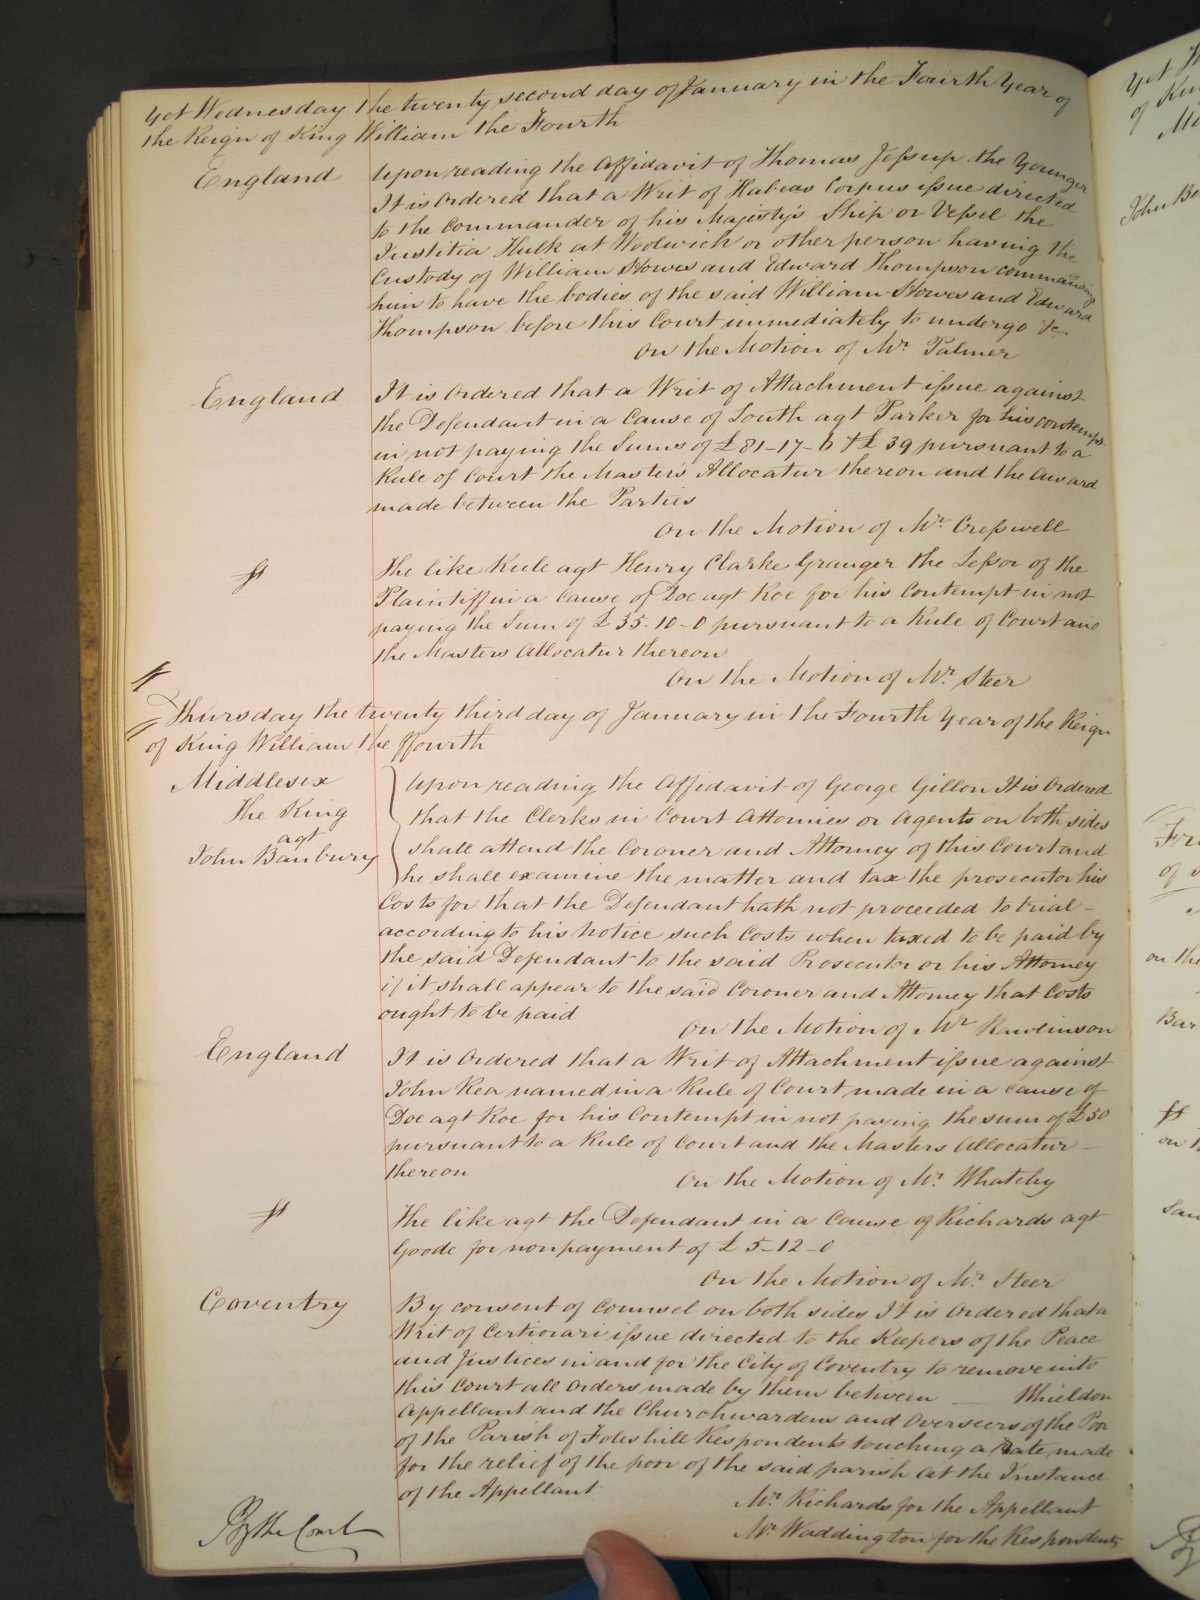 Yet Wednesday the twenty second day of January in the Fourth Year of
the Reign of King William the Fourth
England
Upon reading the Affidavit of Thomas Jessup the Younger
It is Ordered that a Writ of Habeas Corpus issue directed
to the Commander of his Majesty's Ship or Vessel the
Justitia Hulk at Woolwich or other person having the
Custody of William Howes and Edward Thompson commanding
him to have the bodies of the said William Howes and Edward
Thompson before this Court immediately to undergo &c
On the Motion of Mr. Palmer
England
It is Ordered that a Writ of Attachment issue against
the Defendant in a Cause of South agt Parker for his contempt
in not paying the Sums of £81-17-6 & £39 pursuant to a
Rule of Court the Master's Allocatur thereon and the Award
made between the Parties
On the Motion of Mr. Cresswell
ss
The like Rule agt Henry Clarke Granger the Lessor of the
Plaintiff in a Cause of Doe agt Roe for his Contempt in not
paying the Sum of £35.10-0 pursuant to a Rule of Court and
the Masters Allocatur thereon
On the Motion of Mr. Steer
Thursday the twenty third day of January in the Fourth Year of the Reign
of King William the ffourth
Middlesex
The King
agt
John Banbury
Upon reading the Affidavit of George Gillon It is Ordered
that the Clerks in Court Attornies or Agents on both sides
shall attend the Coroner and Attorney of this Court and
he shall examine the matter and tax the prosecutor his
Costs for that the Defendant hath not proceeded to trial -
according to his Notice such Costs when taxed to be paid by
the said Defendant to the said Prosecutor or his Attorney
if it shall appear to the said Coroner and Attorney that Costs
ought to be paid
On the Motion of Mr Rawlinson
England
It is Ordered that a Writ of Attachment issue against
John Rea named in a Rule of Court made in a cause of
Doe agt Roe for his Contempt in not paying the sum of £50
pursuant to a Rule of Court and the Masters Allocatur -
thereon
On the Motion of Mr. Whateley
ss
The like agt the Defendant in a Cause of Richards agt
Goode for nonpayment of £5-12-0
On the Motion of Mr. Steer
Coventry
By consent of Counsel on both sides It is Ordered that a
Writ of Certiorari issue directed to the Keepers of the Peace
and Justices in and for the City of Coventry to remove into
this Court all Orders made by them between - Whieldon
Appellant and the Churchwardens and Overseers of the Poor
of the Parish of Foleshill Respondents touching a Rate made
for the relief of the poor of the said parish At the Instance
of the Appellant
Mr. Richards for the Appellant
Mr. Waddington for the Respondents
By the Court